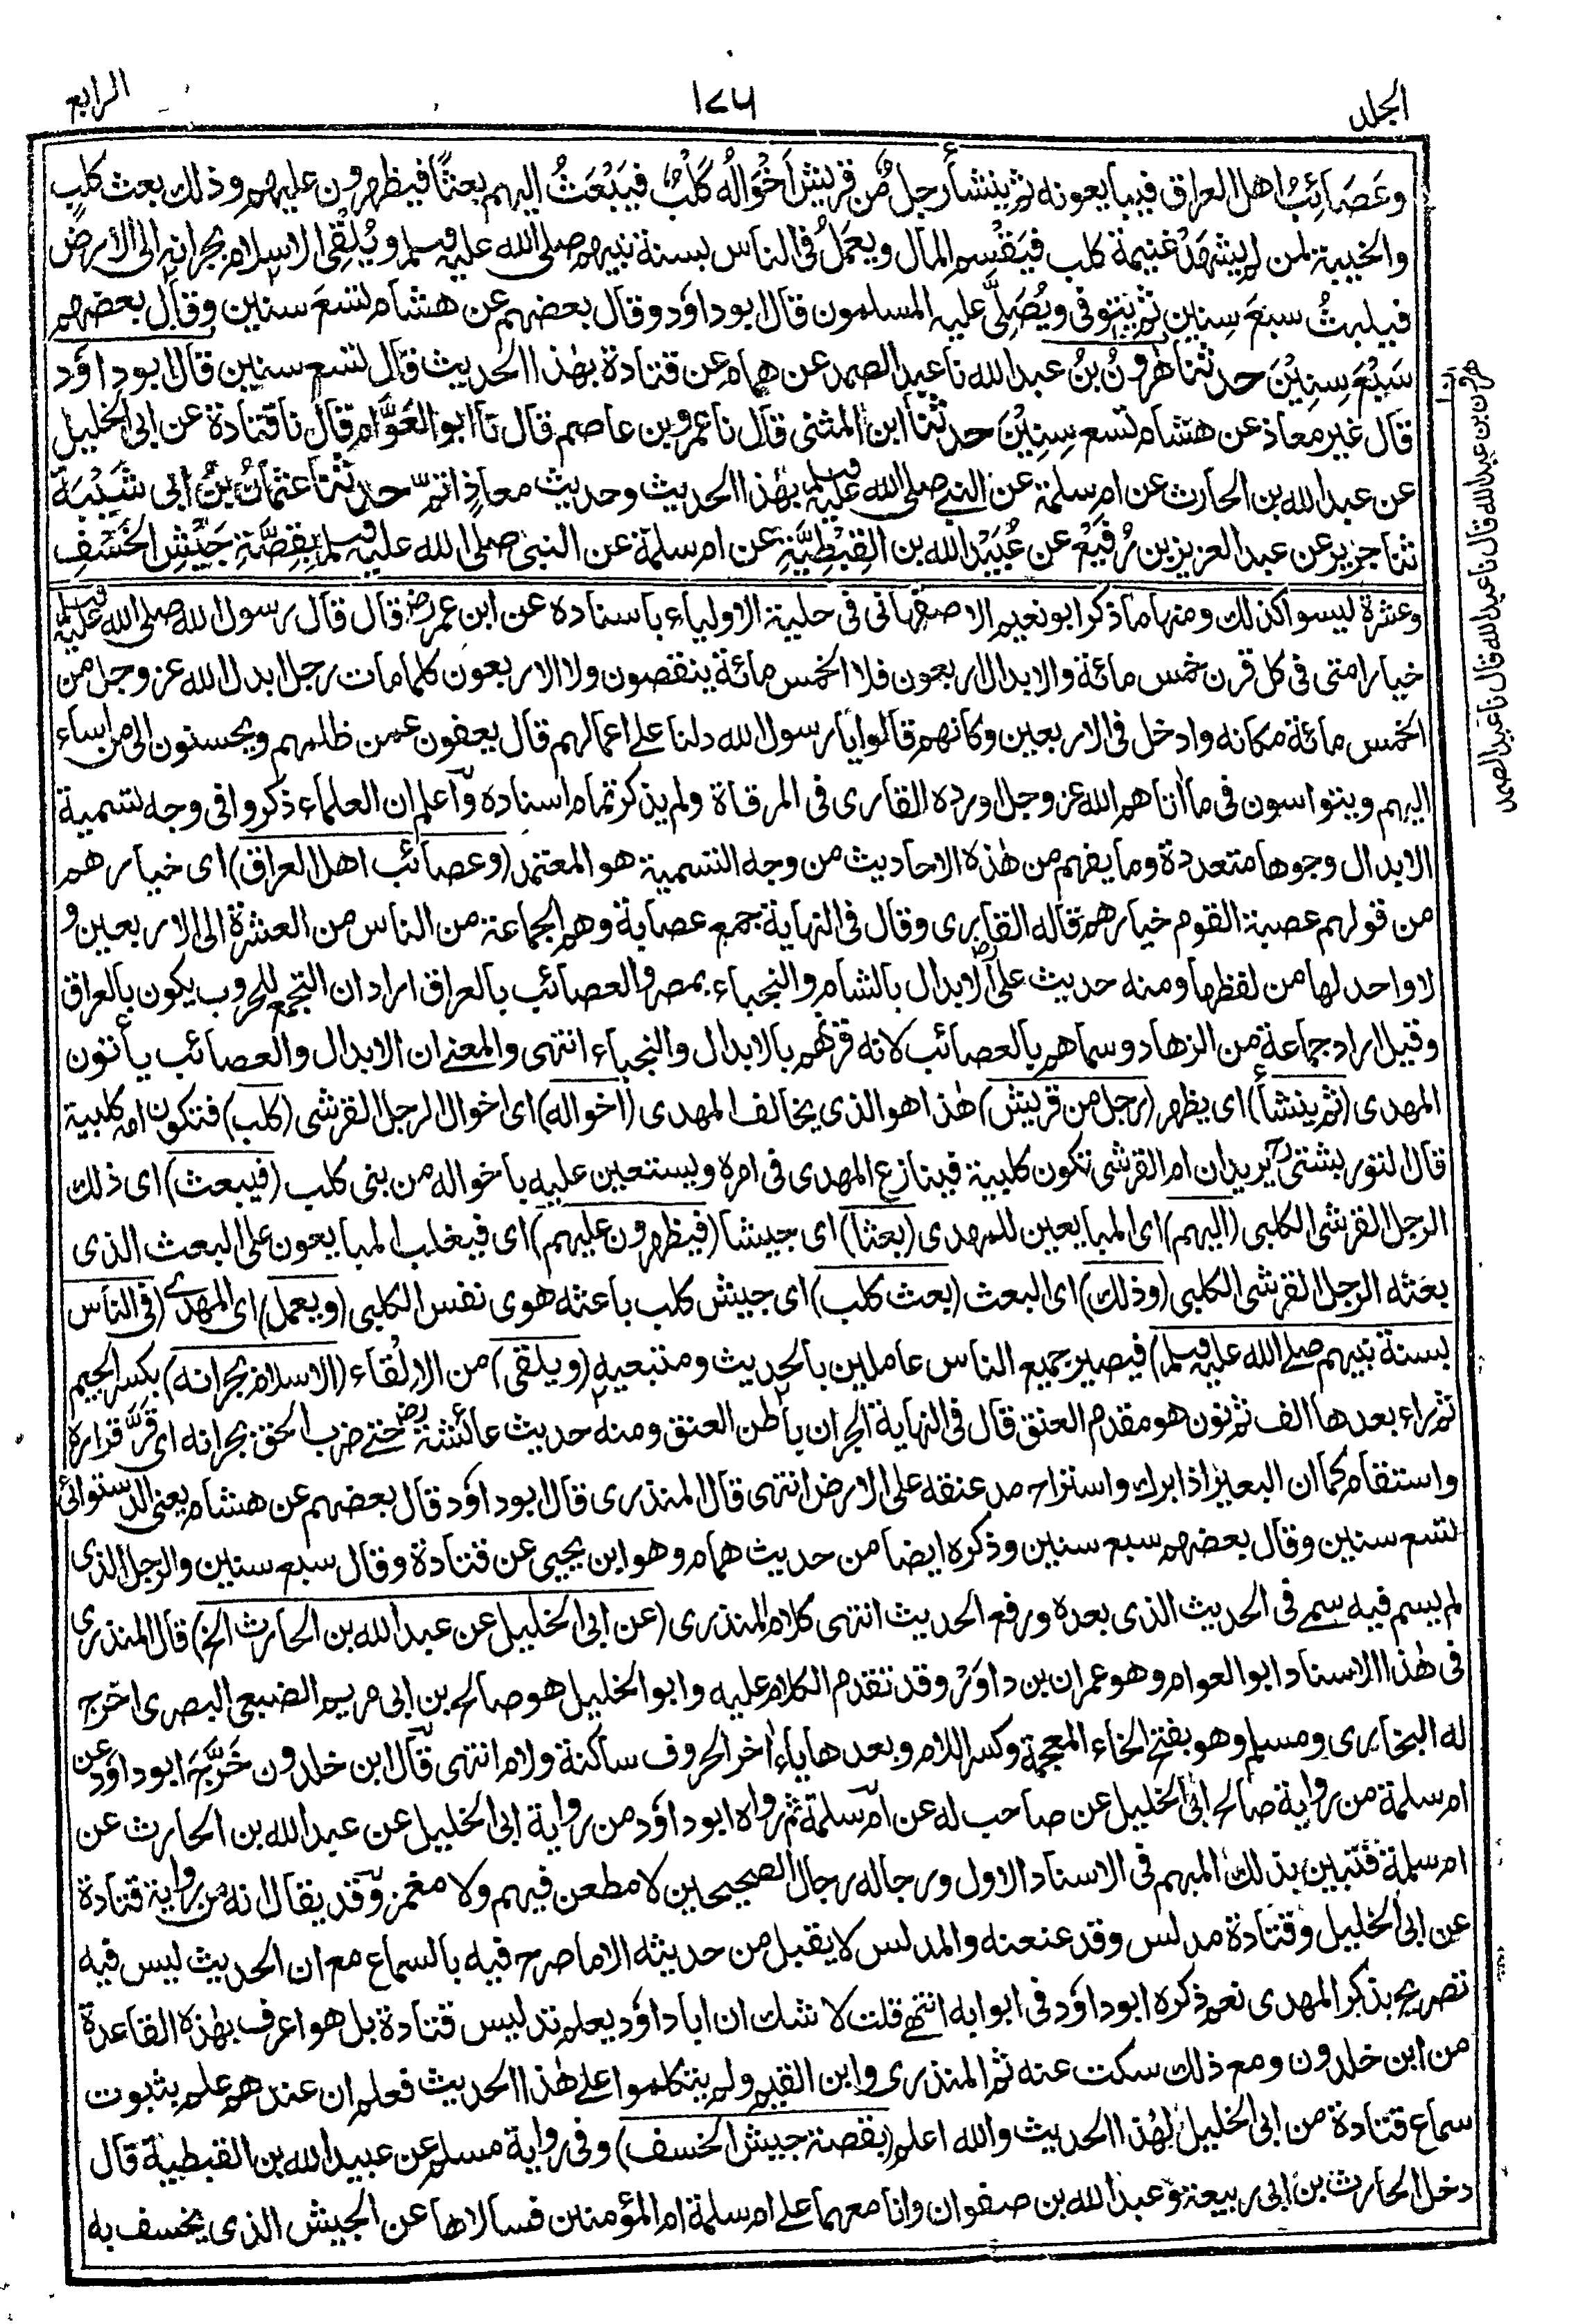 الجلد
١٧٦
الرابع
وعَصَائِبُ اهل العراق فيبايعونه ثم ينشأ رجل من قريش اَخْوَالُه كَلْبٌ فيَبْعَثُ اليهم بعثًا فيظهرون عليهم وذلك بعث كلب
والخيبة لمن لم يشهَدْ غنيمة كلب فيَقْسِم المال ويعمَلُ فى الناس بسنة نبيهم صلى الله عليه وسلم ويُلْقِى الاسلام بجرانه الى الارض
فيلبثُ سبعَ سِنينَ ثم يتوفى ويُصَلِّى عليه المسلمون قال ابو داؤد وقال بعضهم عن هشام تسعَ سنين وقال بعضهم
سَبْعَ سِنِيْنَ حدثنا هٰرونُ بنُ عبد الله نا عبد الصمد عن همام عن قتادة بهٰذا الحديث قال تسع سنين قال ابو داؤد
قال غير معاذ عن هشام تسع سِنِيْنَ حدثنا ابن المثنى قال نا عمرو بن عاصم قال نا ابو العَوَّام قال نا قتادة عن ابى الخليل
عن عبد الله بن الحارث عن ام سلمة عن النبى صلى الله عليه وسلم بهٰذا الحديث وحديث معاذٍ اتمّ حدثنا عثمانُ بنُ ابى شَيْبَةَ
ثنا جرير عن عبد العزيز بن رُفَيْع عن عُبَيْد الله بن القِبْطِيَّةِ عن ام سلمة عن النبى صلى الله عليه وسلم بقِصَّةِ جَيْشِ الخَسْفِ
هٰرون بن عبد الله قال نا عبد الله قال نا عبد الصمد
وعشرة ليسوا كذلك ومنها ما ذكر ابو نعيم الاصفهانى فى حلية الاولياء باسناده عن ابن عمر رض قال قال رسول الله صلى الله عليه وسلم
خيار امتى فى كل قرن خمس مائة والابدال اربعون فلا الخمس مائة ينقصون ولا الاربعون كلما مات رجل ابدل الله عز وجل من
الخمس مائة مكانه وادخل فى الاربعين وكانهم قالوا يا رسول الله دلنا على اعمالهم قال يعفون عمن ظلمهم ويحسنون الى من اساء
اليهم ويتواسون فى ما اٰتاهم الله عز وجل اورده القارى فى المرقاة ولم يذكر تمام اسناده وآعلم ان العلماء ذكروا فى وجه تسمية
الابدال وجوها متعددة وما يفهم من هٰذه الاحاديث من وجه التسمية هو المعتمد (وعصائب اهل العراق) اى خيارهم
من قولهم عصبة القوم خيارهم قاله القارى وقال فى النهاية جمع عصابة وهم الجماعة من الناس من العشرة الى الاربعين و
لا واحد لها من لفظها ومنه حديث على رض الابدال بالشام والنجباء بمصر والعصائب بالعراق اراد ان التجمع للحروب يكون بالعراق
وقيل اراد جماعة من الزهاد وسماهم بالعصائب لانه قرنهم بالابدال والنجباء انتهى والمعنى ان الابدال والعصائب يأتون
المهدى (ثم ينشأ) اى يظهر (رجل من قريش) هٰذا هو الذى يخالف المهدى (اخواله) اى اخوال الرجل القرشى (كلب) فتكون امه كلبية
قال التوربشتى رح يريد ان ام القرشى تكون كلبية فينازع المهدى فى امره ويستعين عليه باخواله من بنى كلب (فيبعث) اى ذلك
الرجل القرشى الكلبى (اليهم) اى المبايعين للمهدى (بعثا) اى جيشا (فيظهرون عليهم) اى فيغلب المبايعون على البعث الذى
بعثه الرجل القرشى الكلبى (وذلك) اى البعث (بعث كلب) اى جيش كلب باعثه هوى نفس الكلبى (ويعمل) اى المهدى (فى الناس
بسنة نبيهم صلى الله عليه وسلم) فيصير جميع الناس عاملين بالحديث ومتبعيه (ويلقى) من الالقاء (الاسلام بجرانه) بكسر الجيم
ثم راء بعدها الف ثم نون هو مقدم العنق قال فى النهاية الجران باطن العنق ومنه حديث عائشة رض حتى ضرب الحق بجرانه اى قَرَّ قراره
واستقام كما ان البعير اذا برك واستراح مد عنقه على الارض انتهى قال المنذرى قال ابو داؤد قال بعضهم عن هشام يعنى الدستوائى
تسع سنين وقال بعضهم سبع سنين وذكره ايضا من حديث همام وهو ابن يحيى عن قتادة وقال سبع سنين والرجل الذى
لم يسم فيه سمى فى الحديث الذى بعده ورفع الحديث انتهى كلام المنذرى (عن ابى الخليل عن عبد الله بن الحارث الخ) قال المنذرى
فى هٰذا الاسناد ابو العوام وهو عمران بن داوَر وقد تقدم الكلام عليه وابو الخليل هو صالح بن ابى مريم الضبعى البصرى اخرج
له البخارى ومسلم وهو بفتح الخاء المعجمة وكسر اللام وبعدها ياء اٰخر الحروف ساكنة ولام انتهى قآل ابن خلدون خَرَّجَه ابو داؤد عن
ام سلمة من رواية صالح ابى الخليل عن صاحب له عن ام سلمة ثم رواه ابو داؤد من رواية ابى الخليل عن عبد الله بن الحارث عن
ام سلمة فتبين بذلك المبهم فى الاسناد الاول ورجاله رجال الصحيحين لا مطعن فيهم ولا مغمز وقد يقال انه من رواية قتادة
عن ابى الخليل وقتادة مدلس وقد عنعنه والمدلس لا يقبل من حديثه الا ما صرح فيه بالسماع مع ان الحديث ليس فيه
تصريح بذكر المهدى نعم ذكره ابو داؤد فى ابوابه انتهى قلت لا شك ان ابا داؤد يعلم تدليس قتادة بل هو اعرف بهٰذه القاعدة
من ابن خلدون ومع ذلك سكت عنه ثم المنذرى وابن القيم ولم يتكلموا على هٰذا الحديث فعلم ان عندهم علم بثبوت
سماع قتادة من ابى الخليل لهٰذا الحديث والله اعلم (بقصة جيش الخسف) وفى رواية مسلم عن عبيد الله بن القبطية قال
دخل الحارث بن ابى ربيعة وعبد الله بن صفوان وانا معهما على ام سلمة ام المؤمنين فسالاها عن الجيش الذى يخسف به